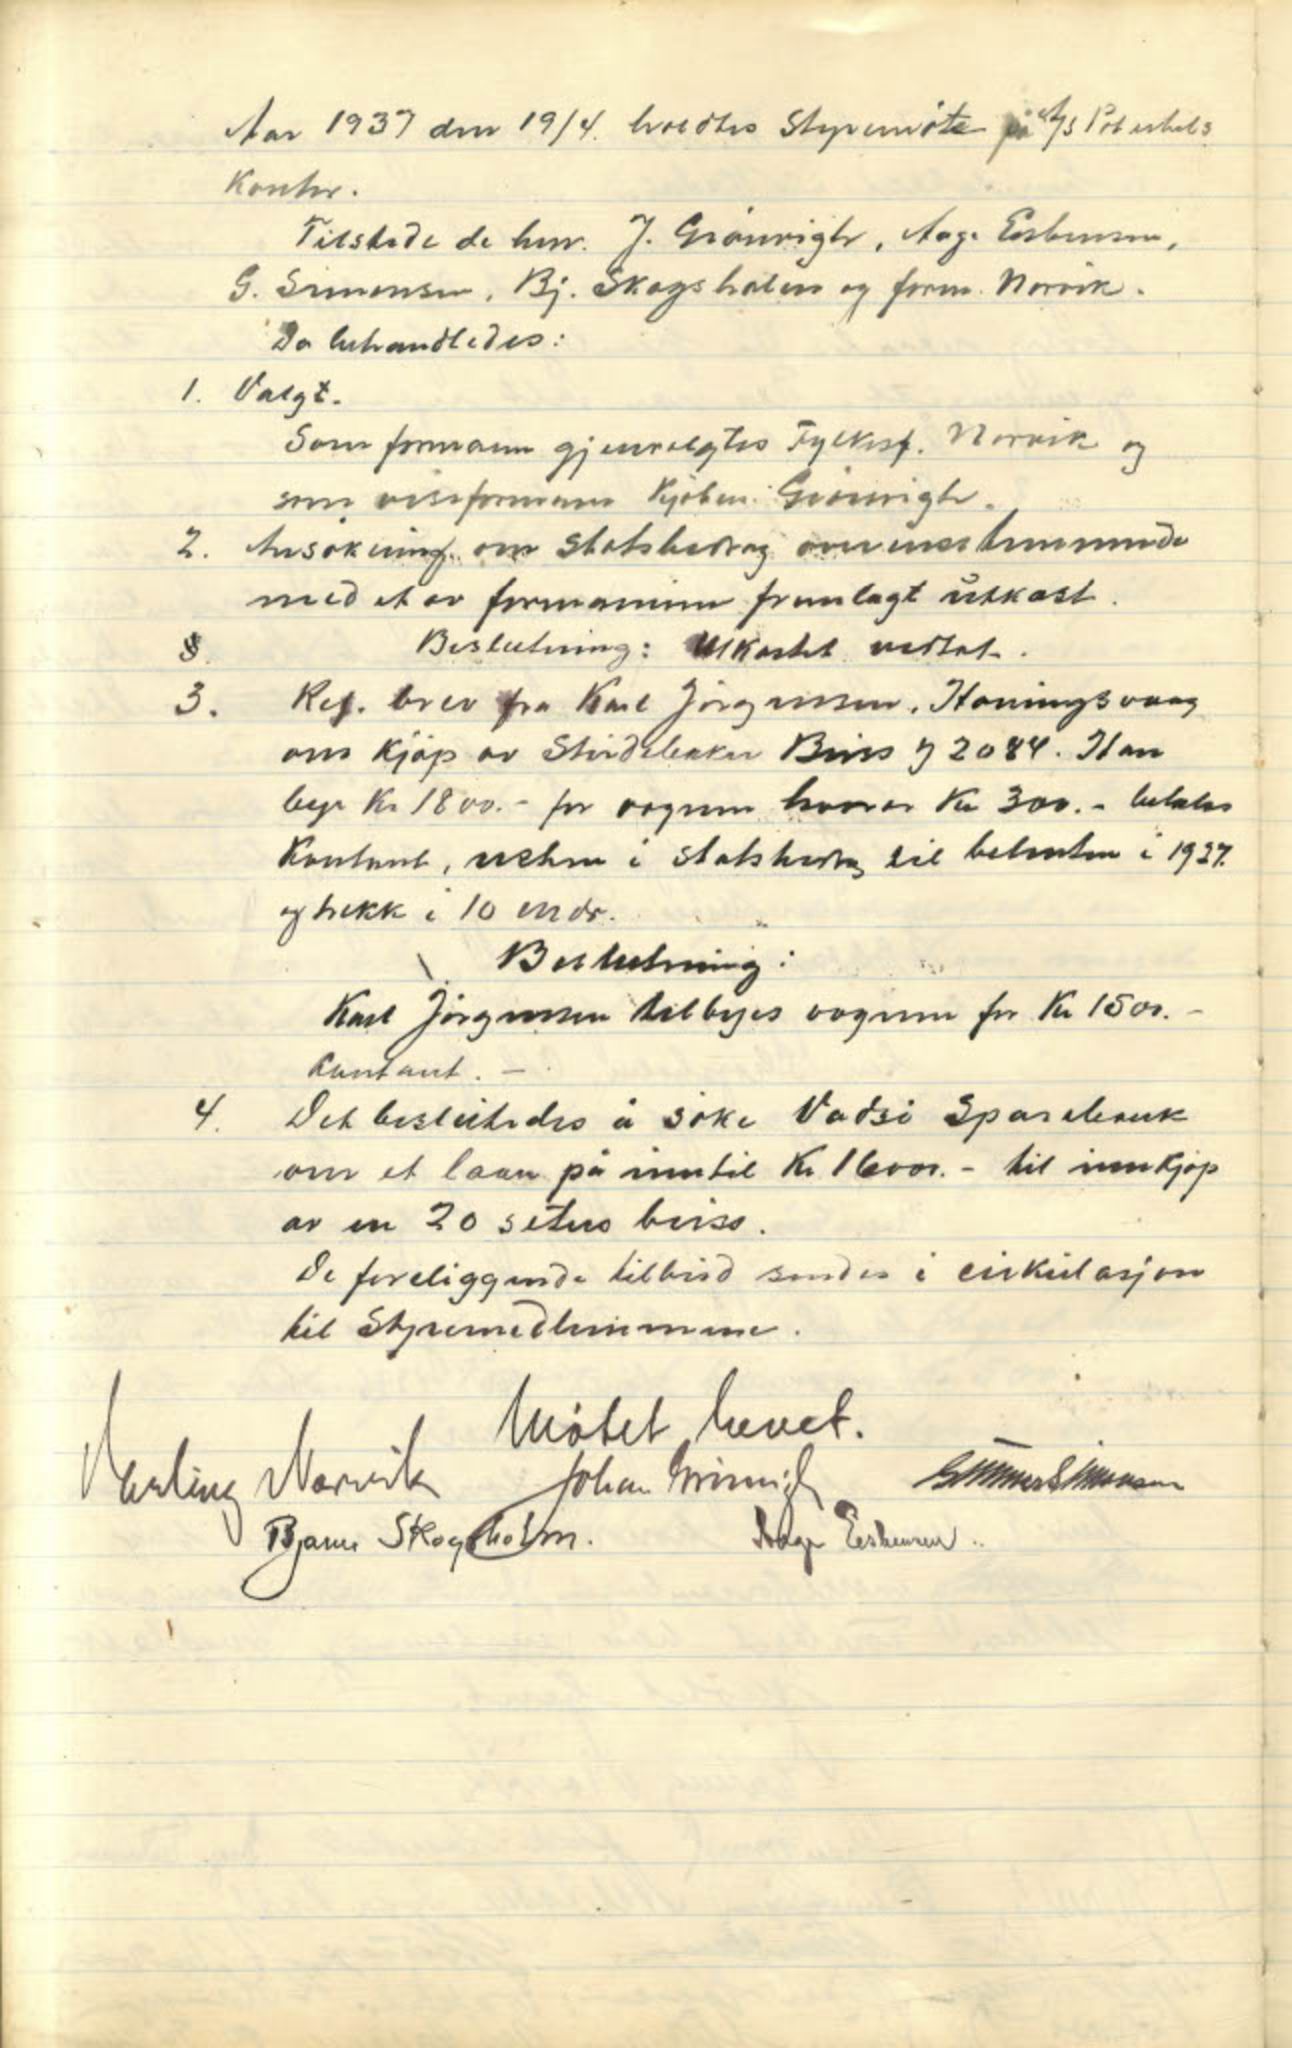 Aar 1937 den 19/4. holdtes Styremöte på A/s Polarbils
Kontor.
Tilstede de herr. J. Grönvigh, Aage Esbensen,
G. Simonsen, Bj. Skogsholm og form. Norvik.
Da behandledes:
1. Valgt.
Som formann gjenvalgtes Fylkesf. Norvik og
som viseformann Kjöbm. Grönvigh.
2. Ansökning om Statsbidrag overensstemmende
med et av formannen fremlagt utkast.
Beslutning: Utkastet vedtat.
3. Ref. brev fra Karl Jörgensen, Honingsvaag
om kjöp av Studebaker Buss Y 2084. Han
byr Kr 1800.- for vognen hvorav Kr 300.- betales
Kontant, resten i Statsbidrag til beløpene i 1937.
og trekk i 10 mndr.
Beslutning:
Karl Jörgensen tilbyes vognen for Kr 1500.-
Kontant. -
4. Det besluttedes å söke Vadsö Sparebank
om et laan på inntil Kr 16000.- til innkjöp
av en 20 seters buss.
De foreliggende tilbud sendes i cirkulasjon
til Styremedlemmene.
Mötet hevet.
Norvik Johan Grönvigh Gunnar Simonsen
Bjarne Skogsholm. Aage Esbensen.